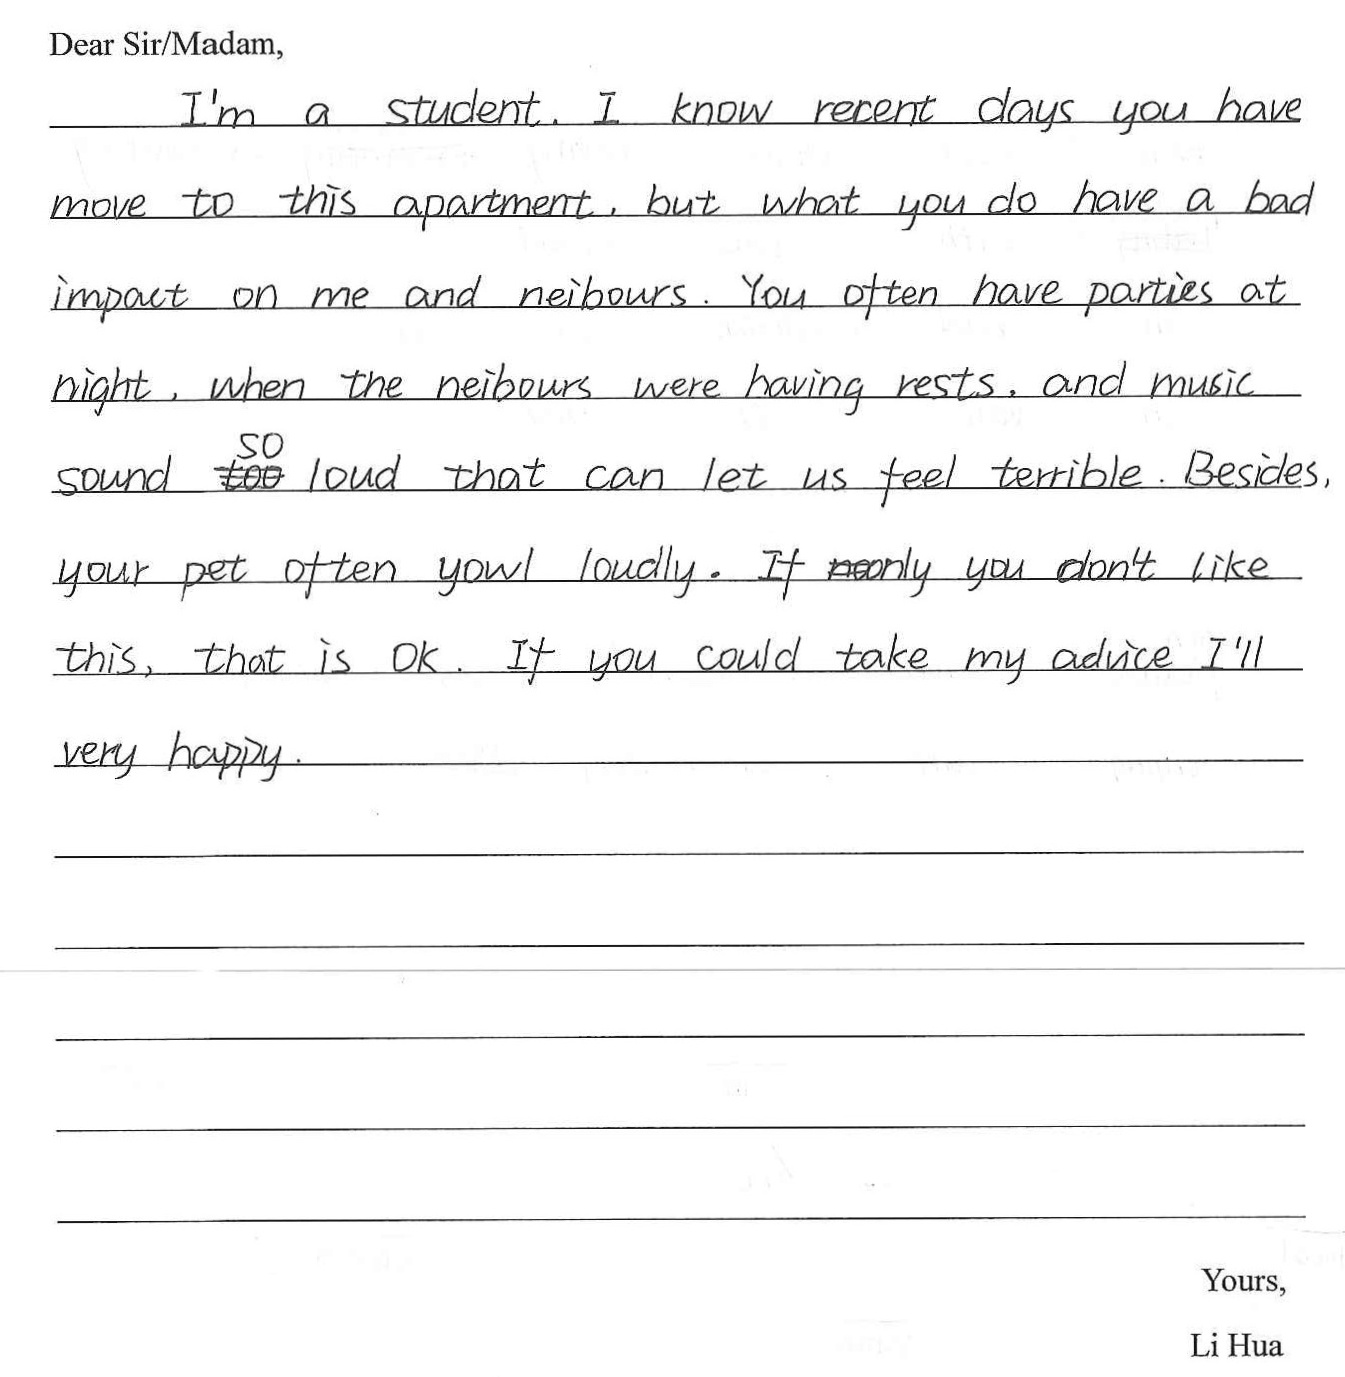 Dear Sir/Madam,
I'm a student. I know recent days you have
move to this apartment, but what you do have a bad
impact on me and neibours. You often have parties at
night, when the neibours were having rests, and music
sound so loud that can let us feel terrible. Besides,
your pet often yowl loudly. If only you don't like
this, that is OK. If you could take my advice I'll
very happy.
Yours,
Li Hua